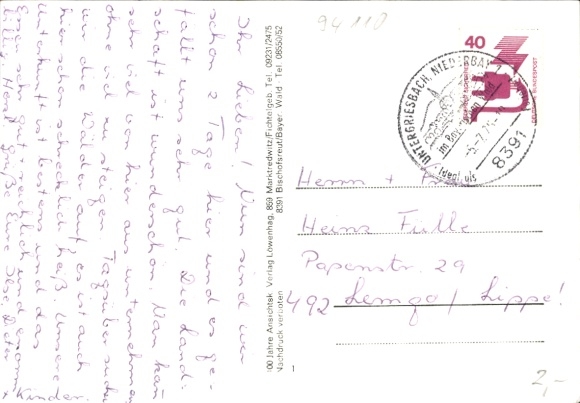 94 110
Ihr Lieben! Nun sind wir
schon 2 Tage hier und es ge-
fällt uns sehr gut. Die Land-
schaft ist wunderschön. Man kann
sehr viel von hier aus unternehmen
ohne viel zu steigen. Tagsüber suchen
wir die Wälder auf, es ist auch
hier schon schrecklich heiß. Unsere
Unterkunft ist bestens und das
Essen sehr gut + reichlich und
Gruß Eure
Kinder.
100 Jahre Ansichtsk. Verlag Löwenhag, 859 Marktredwitz/Fichtelgeb. Tel. 09231/2475
Nachdruck verboten 8391 Bischofsreut/Bayer. Wald Tel. 08550/52
40
DEUTSCHE BUNDESPOST
UNTERGRIESBACH, NIEDERBAY.
8391
Herrn +
Heinz Fülle
Papenstr. 29
492 Lemgo / Lippe!
2,-